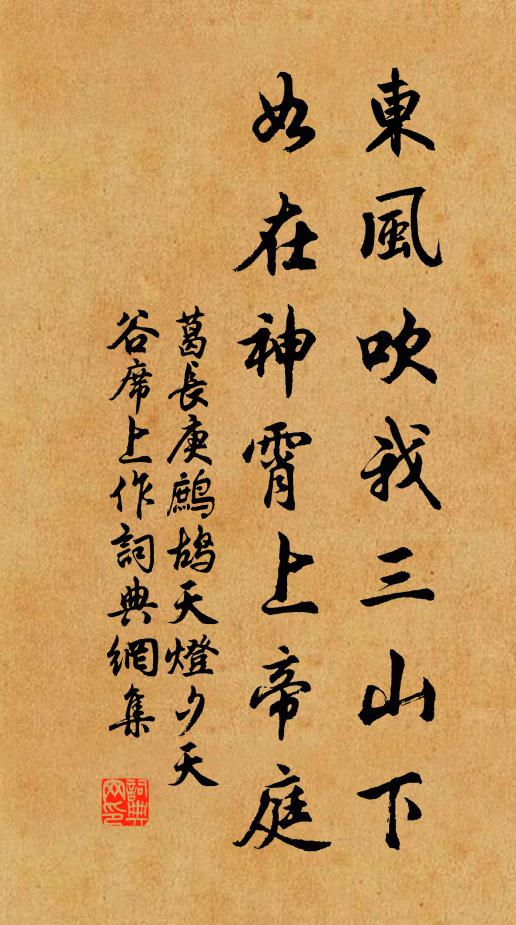 東風吹我三山下
如在神霄上帝庭
葛長庚鷓鴣天燈夕天
谷席上作詞典網集
詞典網印